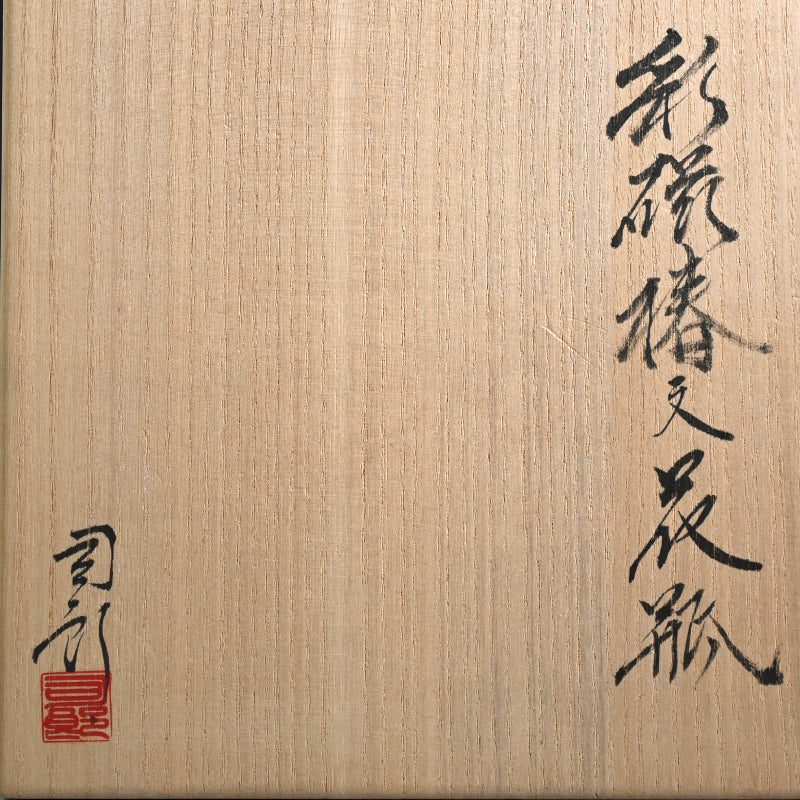 彩磁椿文花瓶
司郎
司郎